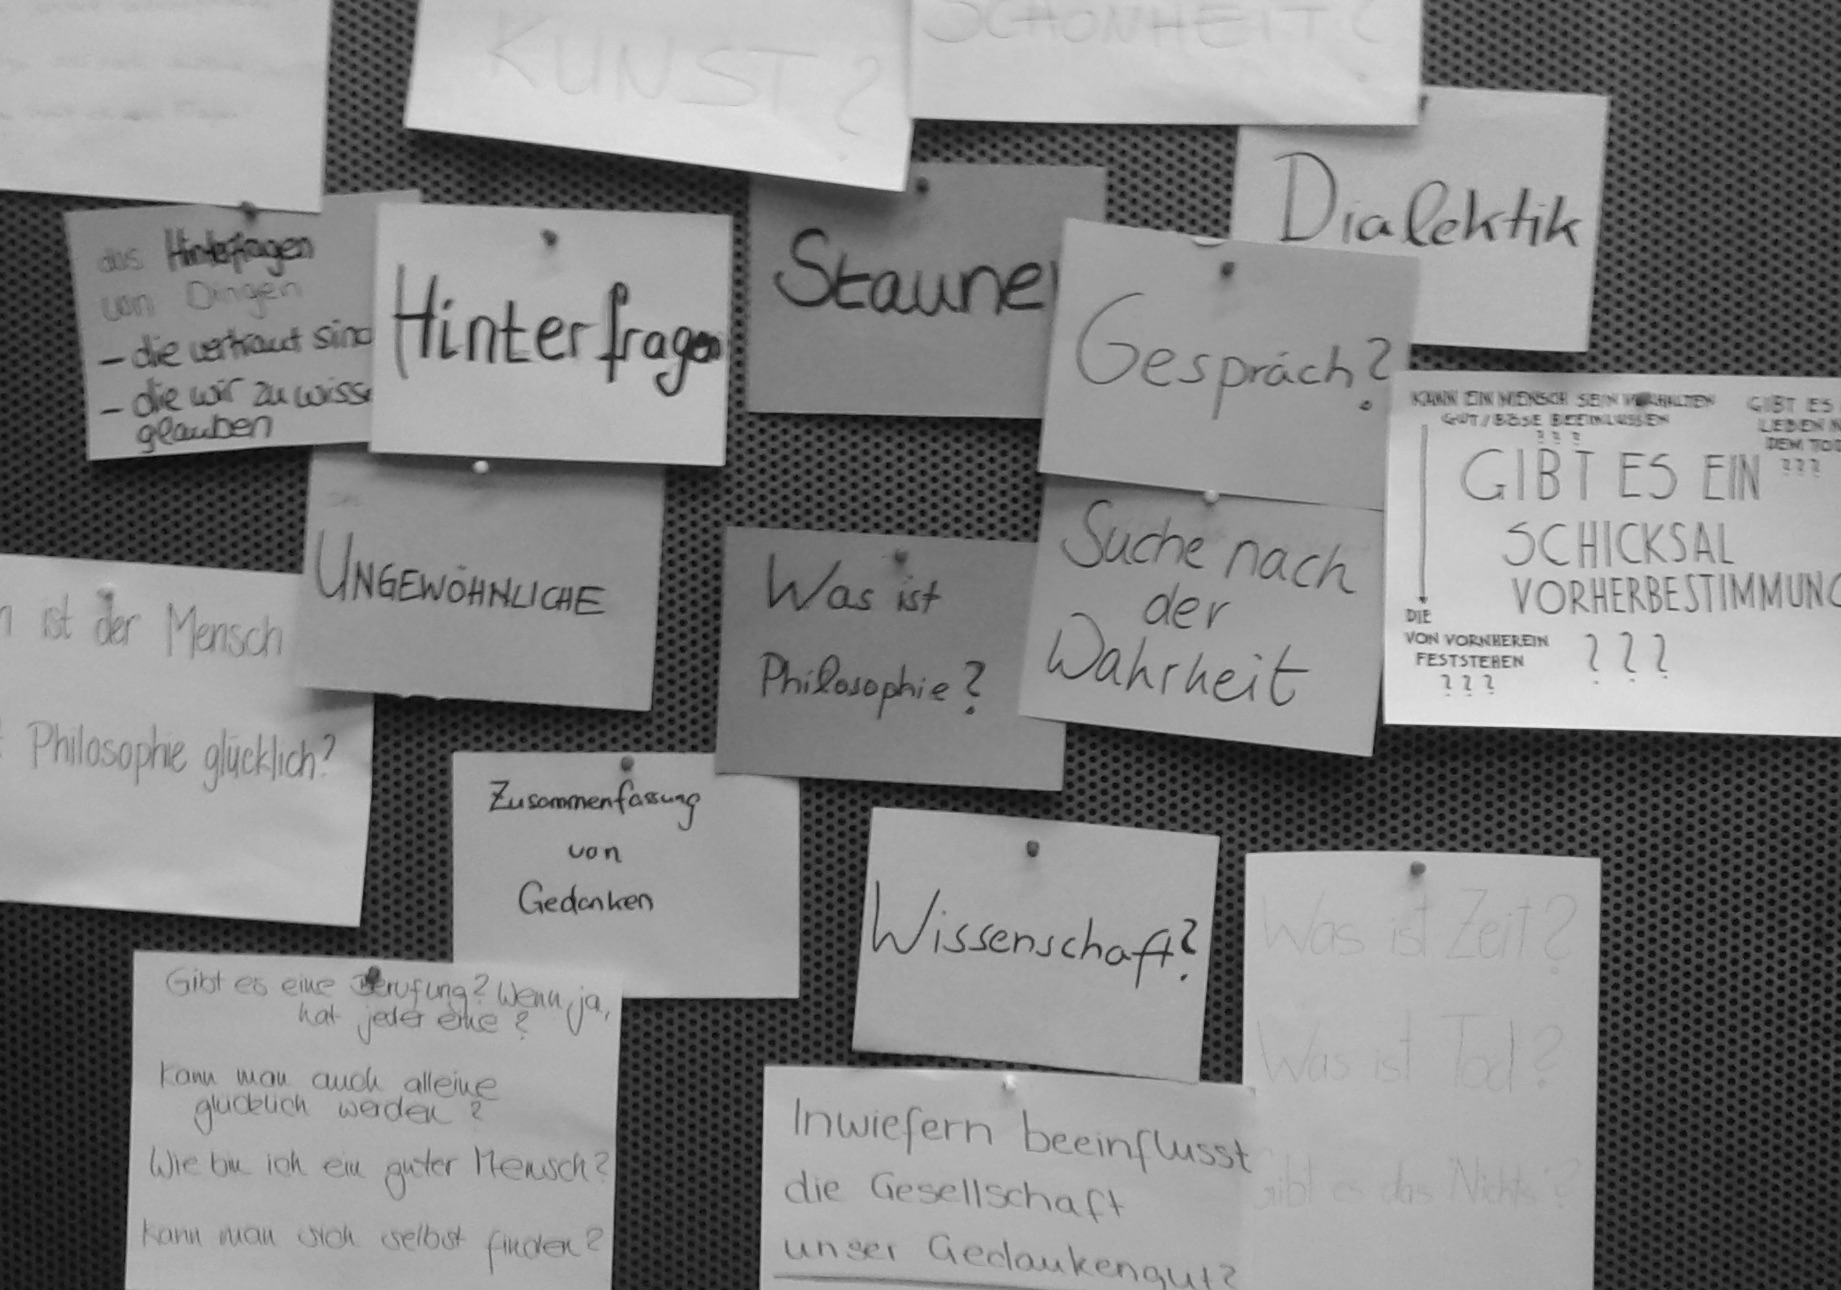 KUNST?
SCHÖNHEIT?
Dialektik
das Hinterfragen
von Dingen
- die vertraut sind
- die wir zu wisse
glauben
Hinterfragen
Staune
Gespräch?
KANN EIN MENSCH SEIN VORHALTEN
GUT/BÖSE BEEINLUSSEN
? ? ?
GIBT ES
LEBEN N
DEM TOD
???
GIBT ES EIN
SCHICKSAL
VORHERBESTIMMUNG
? ? ?
DIE
VON VORNHEREIN
FESTSTEHEN
? ? ?
UNGEWÖHNLICHE
Was ist
Philosophie?
Suche nach
der
Wahrheit
ist der Mensch
Philosophie glücklich?
Zusammenfassung
von
Gedanken
Wissenschaft?
Was ist Zeit?
Was ist Tod?
gibt es das Nichts?
Gibt es eine Berufung? Wenn ja,
hat jeder eine?
Kann man auch alleine
glücklich werden?
Wie bin ich ein guter Mensch?
Kann man sich selbst finden?
Inwiefern beeinflusst
die Gesellschaft
unser Gedankengut?